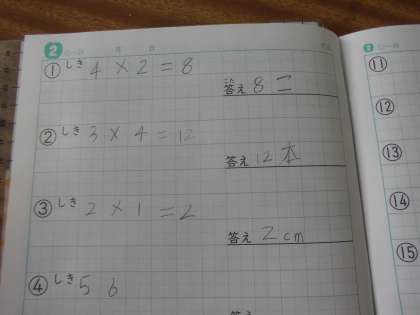 2
① しき 4 × 2 = 8
答え 8 こ
② しき 3 × 4 = 12
答え 12 本
③ しき 2 × 1 = 2
答え 2 cm
④ しき 5 6
⑪
⑫
⑬
⑭
⑮